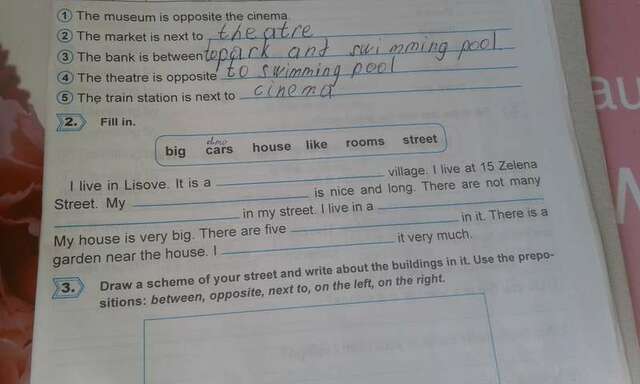 1 The museum is opposite the cinema.
2 The market is next to theatre
3 The bank is between to park and swimming pool
4 The theatre is opposite to swimming pool
5 The train station is next to cinema
2. Fill in.
big cars house like rooms street
I live in Lisove. It is a village. I live at 15 Zelena
Street. My is nice and long. There are not many
in my street. I live in a
My house is very big. There are five in it. There is a
garden near the house. I it very much.
3. Draw a scheme of your street and write about the buildings in it. Use the prepo-
sitions: between, opposite, next to, on the left, on the right.
au